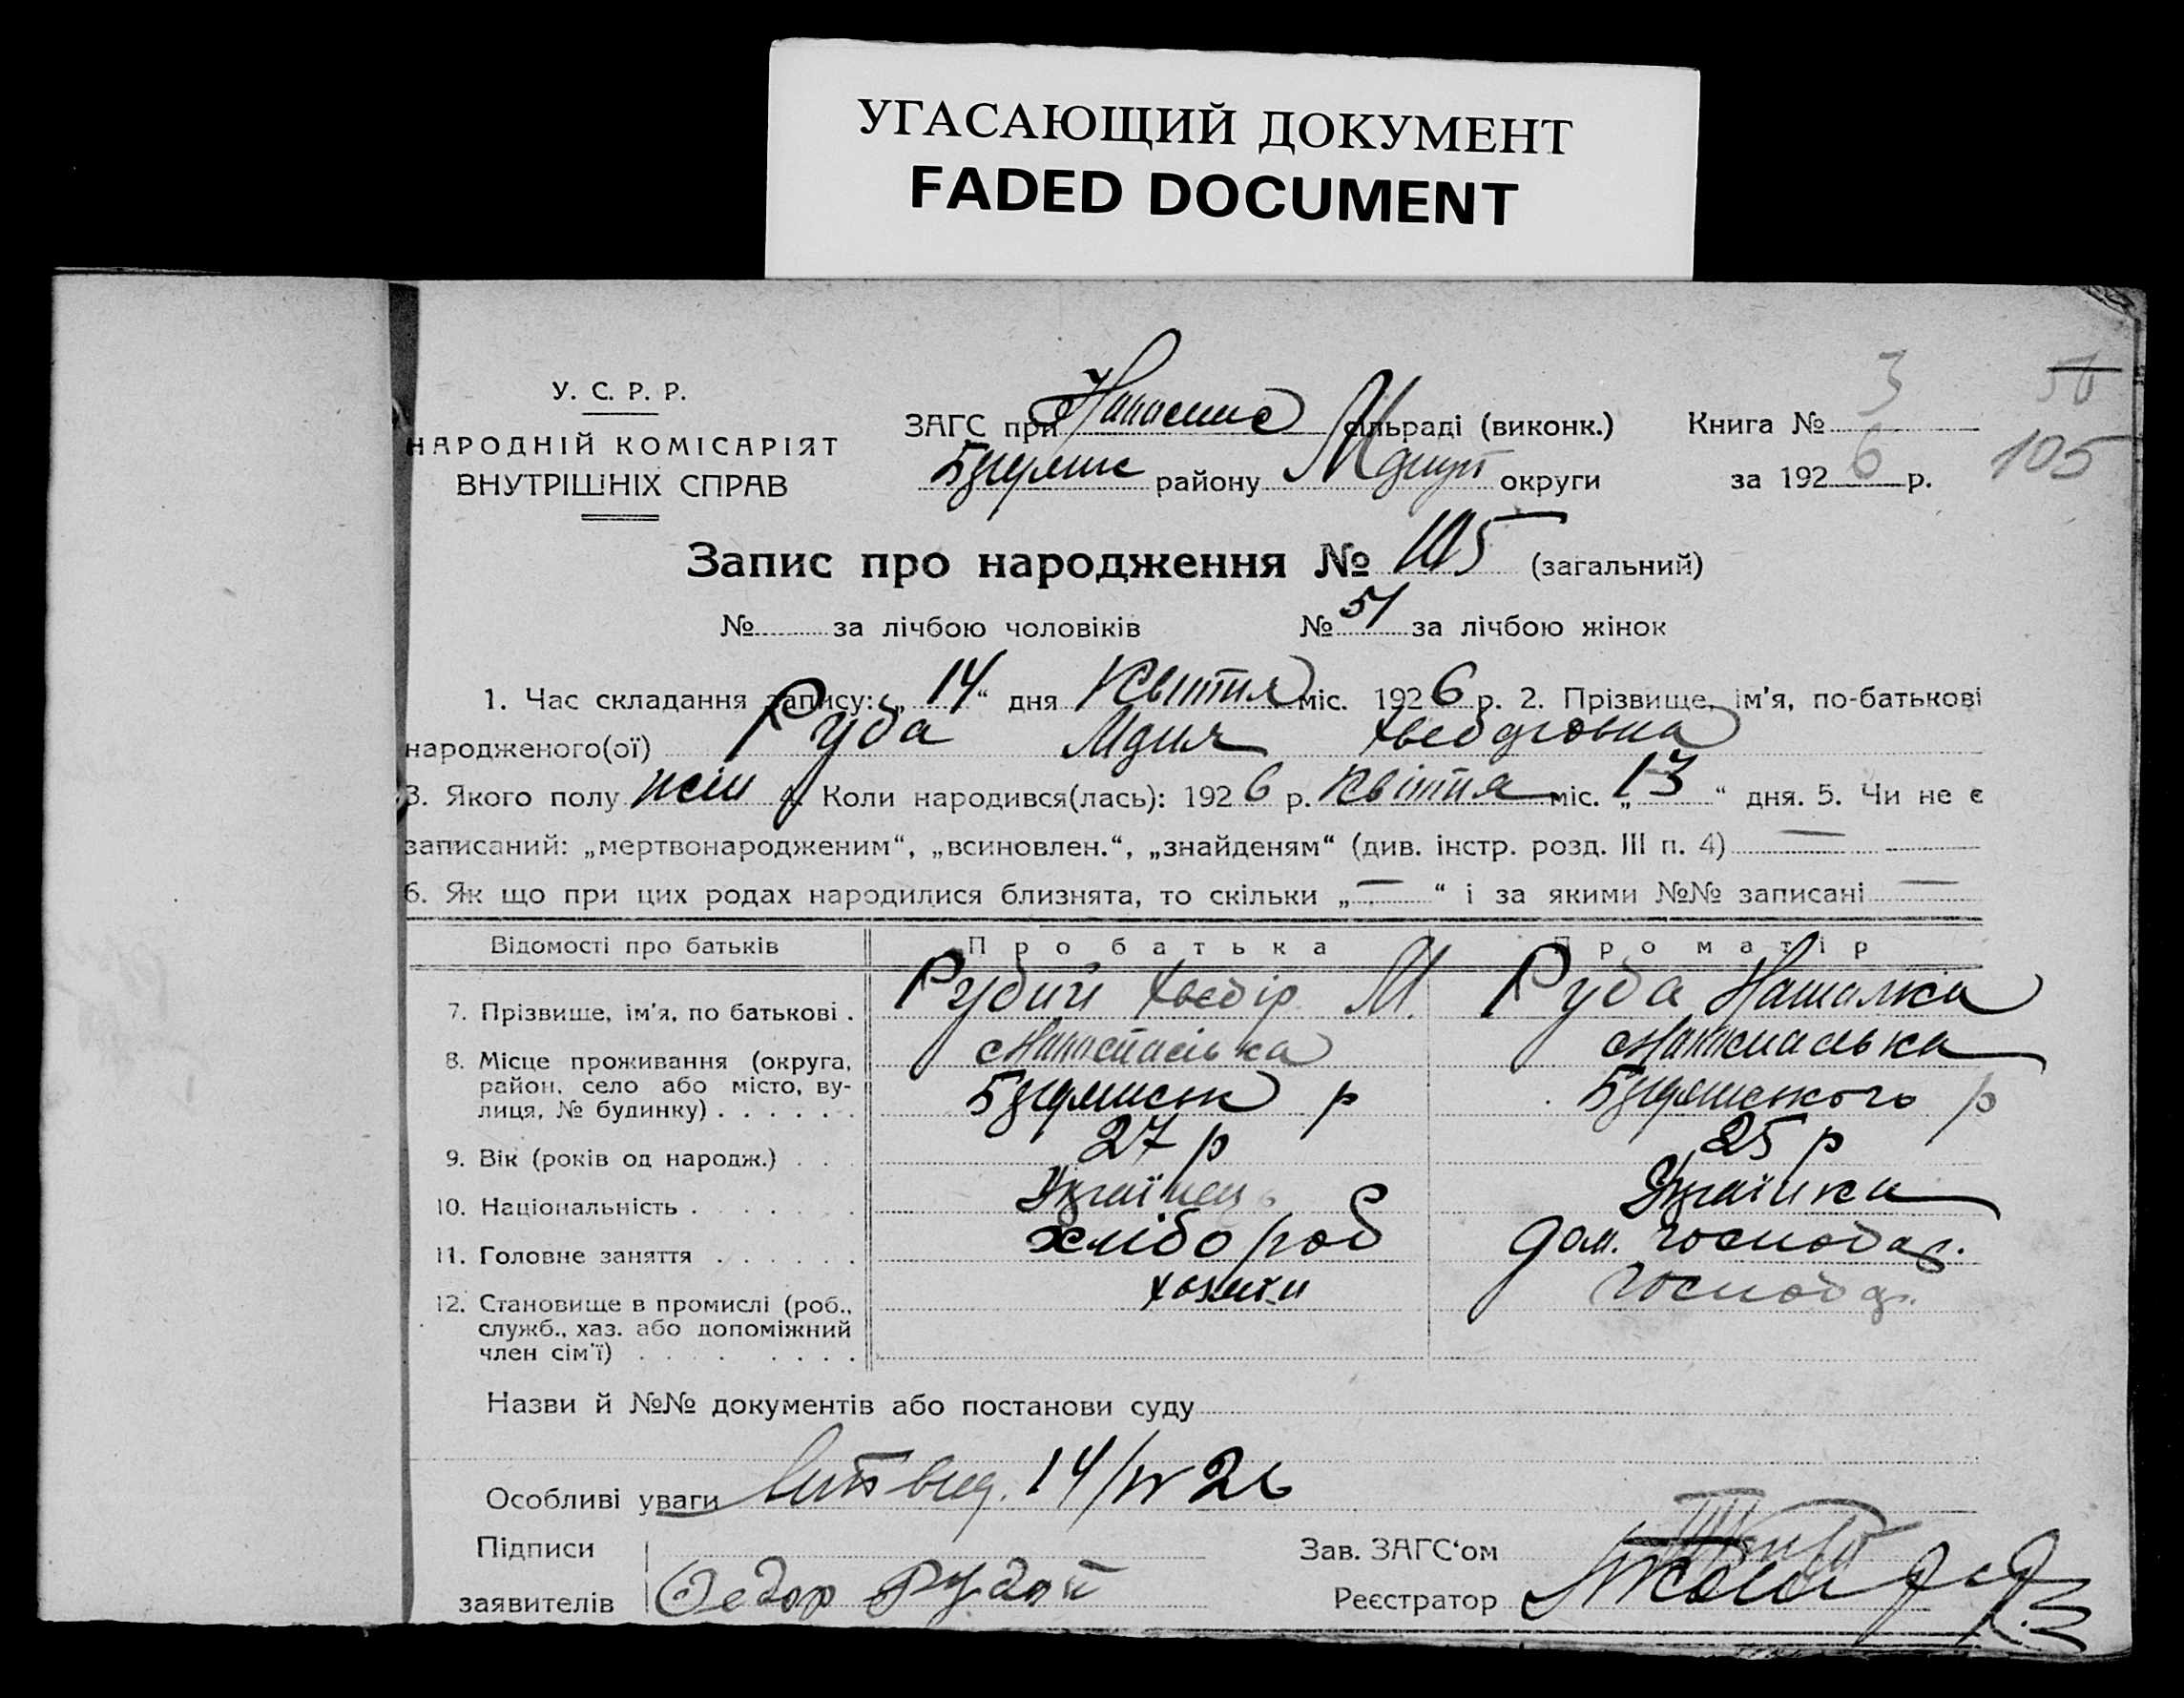 УГАСАЮЩИЙ ДОКУМЕНТ
FADED DOCUMENT
У. С. Р. Р.
НАРОДНІЙ КОМІСАРІЯТ
ВНУТРІШНІХ СПРАВ
ЗАГС при сільраді (виконк.)
району округи
Книга № 3
за 1926 р.
50
105
Запис про народження № 105 (загальний)
№ за лічбою чоловіків № 51 за лічбою жінок
1. Час складання запису: „ 14 “ дня Квітня міс. 1926 р. 2. Прізвище, ім'я, по-батькові
народженого(ої) Руба Хведоровна
3. Якого полу жін 4. Коли народився(лась): 1926 р. Квітня міс. „ 13 “ дня. 5. Чи не є
записаний: „мертвонародженим“, „всиновлен.“, „знайденям“ (див. інстр. розд. III п. 4) —
6. Як що при цих родах народилися близнята, то скільки „ — “ і за якими №№ записані —
Відомості про батьків Про батька Про матір
7. Прізвище, ім'я, по батькові . Рубий Хведір М. Руба Наталка
8. Місце проживання (округа,
район, село або місто, ву-
лиця, № будинку) . . . . . . р р
9. Вік (років од народж.) . . . 27 р 25 р
10. Національність . . . . . . . Українець Українка
11. Головне заняття . . . . . . хлібороб дом. господар.
12. Становище в промислі (роб.,
служб., хаз. або допоміжний
член сім'ї) . . . . . . . .
Назви й №№ документів або постанови суду
Особливі уваги 14/IV 26
Підписи
заявителів Федор Рудой
Зав. ЗАГС'ом
Реєстратор